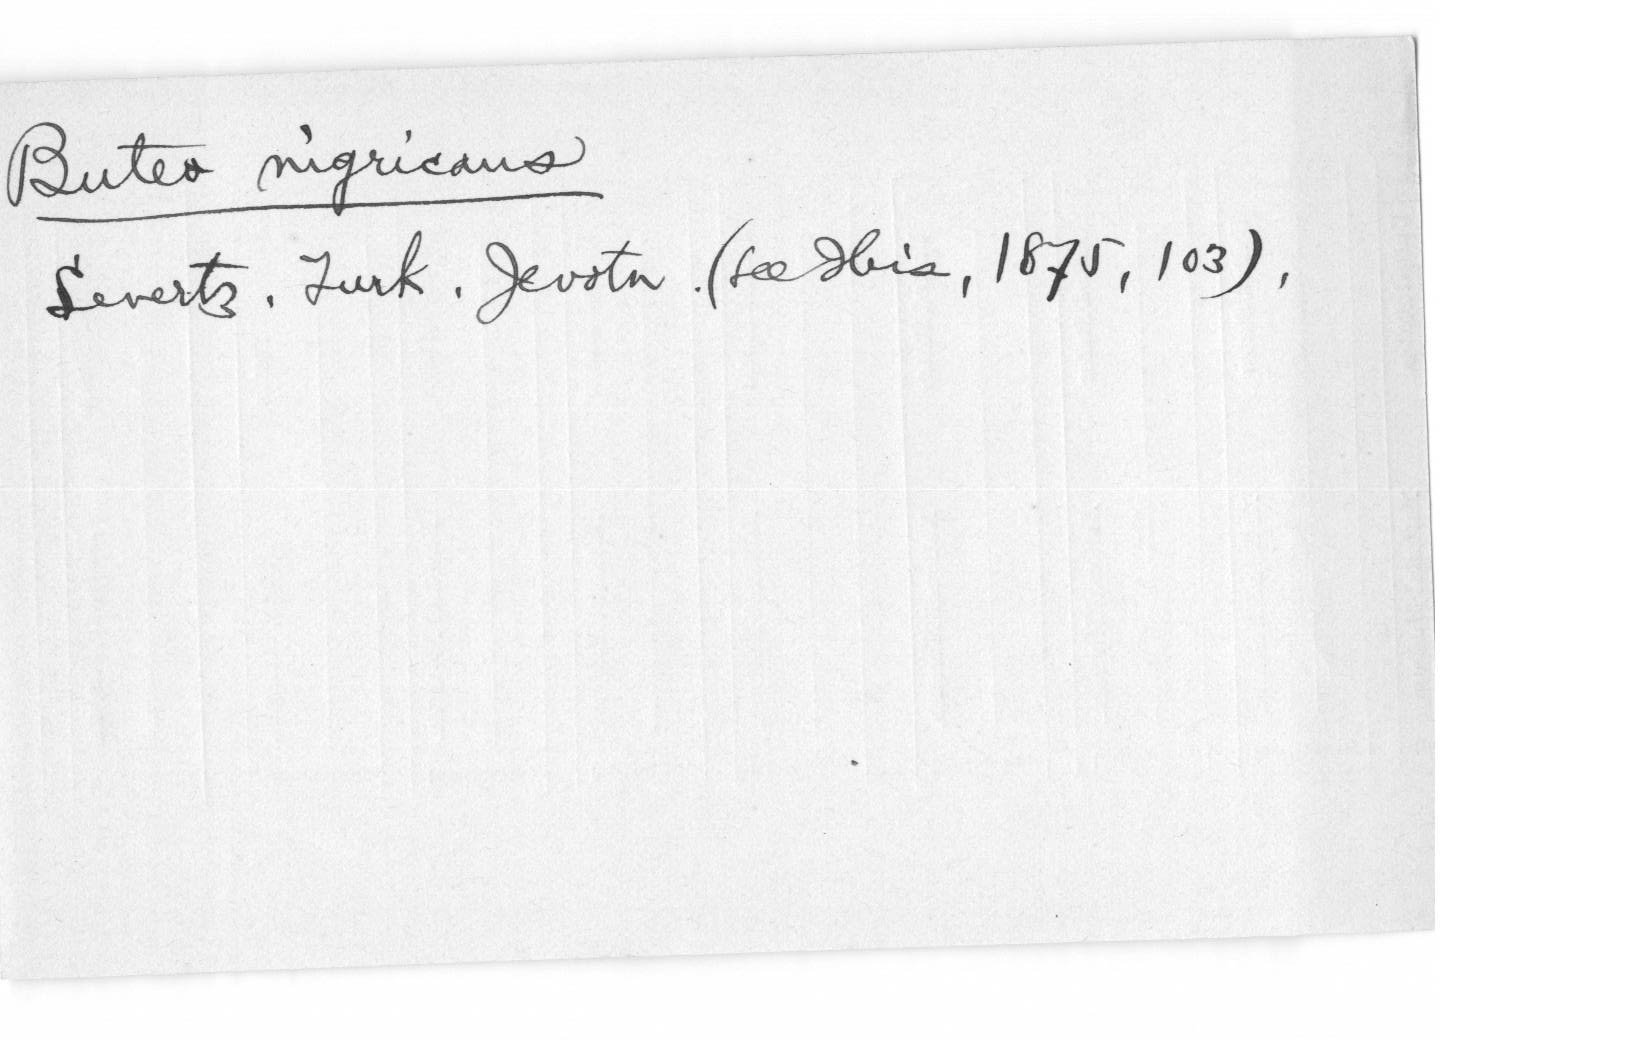 Buteo nigricans
Severtz. Turk. Jevotn. (see Ibis, 1875, 103),